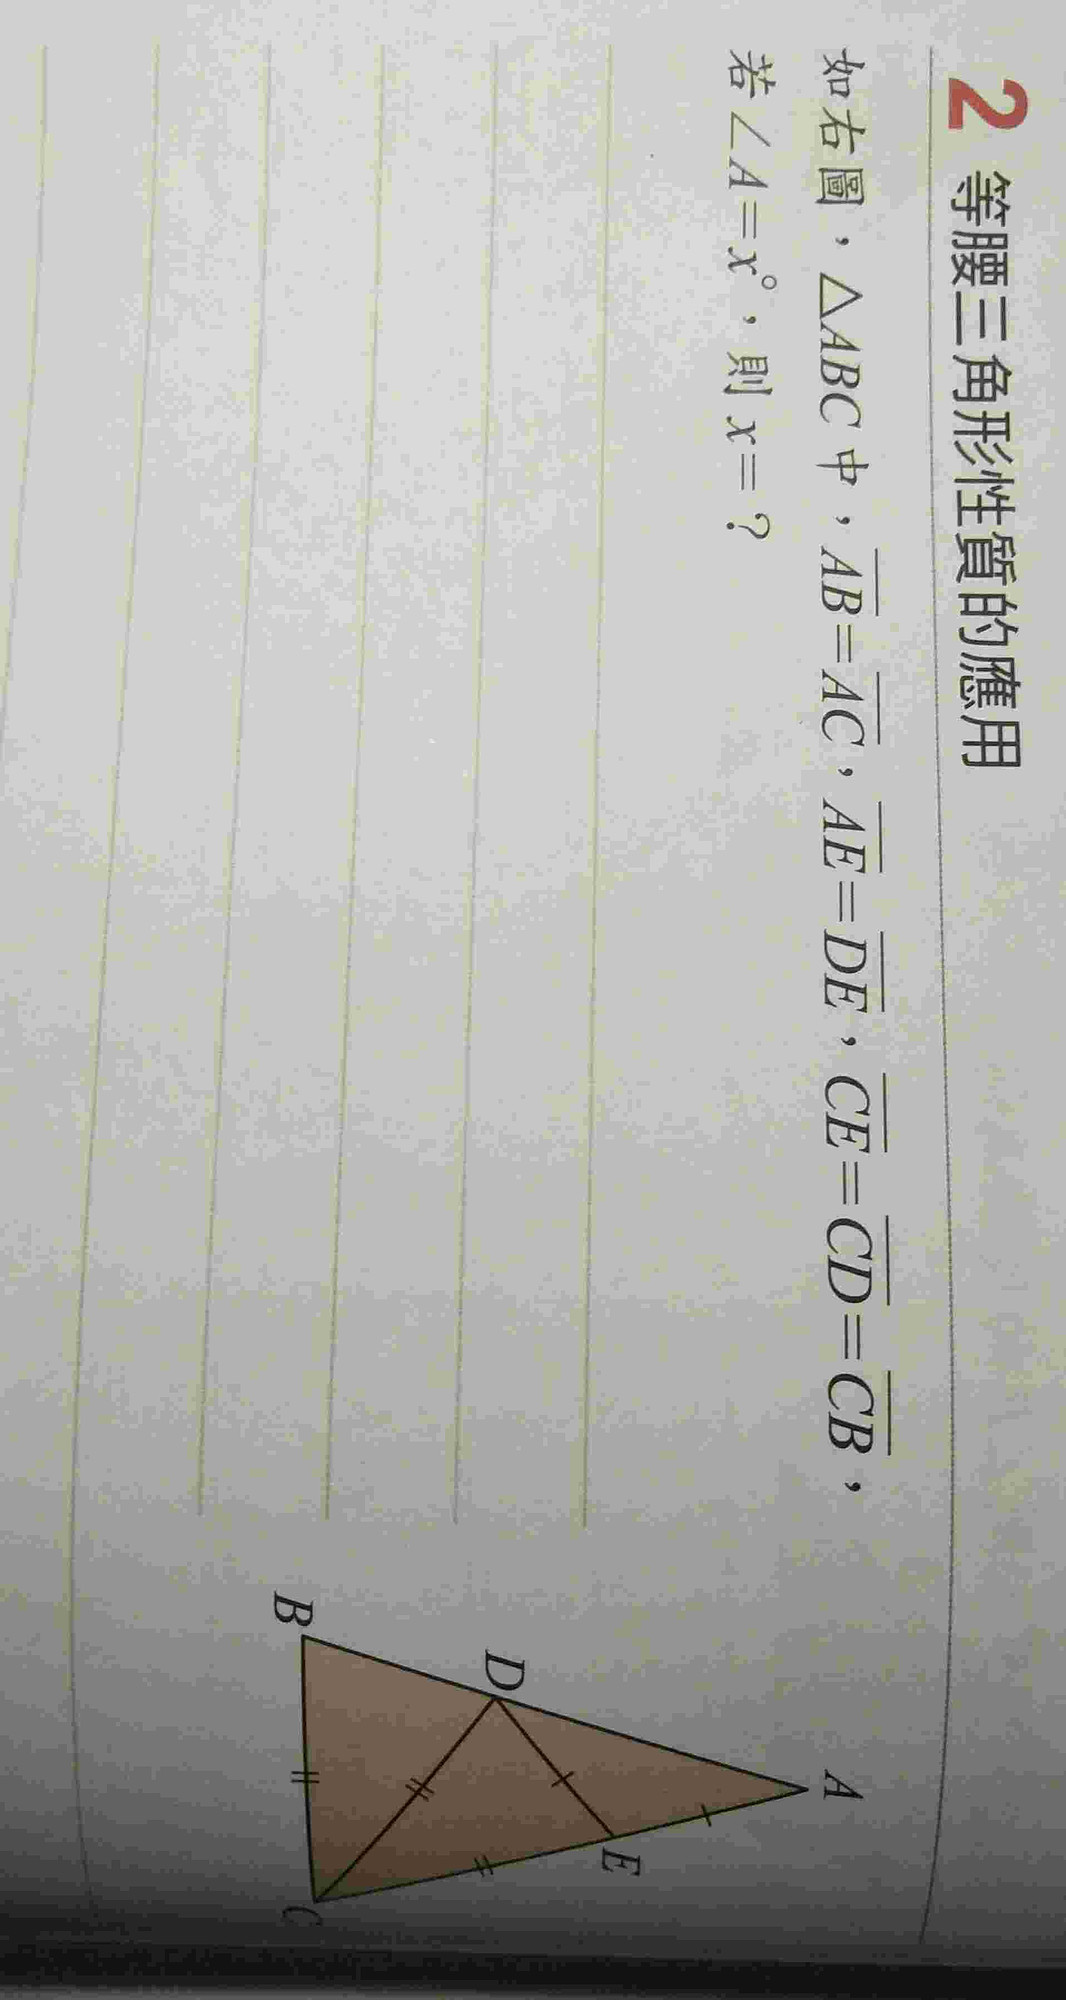 2 等腰三角形性質的應用
如右圖，△ABC 中，A̅B̅=A̅C̅，A̅E̅=D̅E̅，C̅E̅=C̅D̅=C̅B̅，
若∠A=x°，則 x=？
A
D
E
B
C